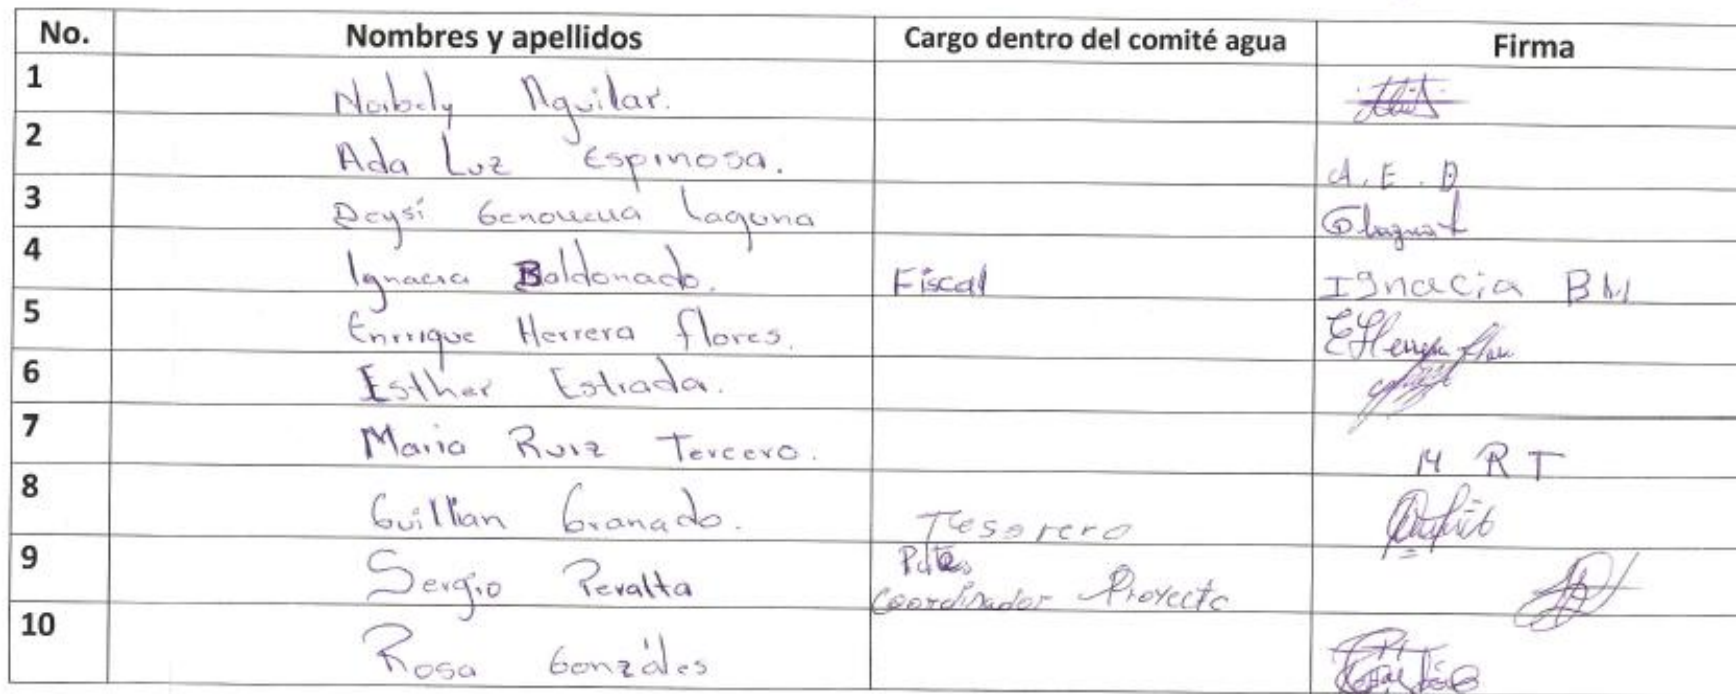 No. Nombres y apellidos Cargo dentro del comité agua Firma
1 Norbely Aguilar.
2 Ada Luz Espinosa. A. E. D
3 Deysi Genoveva Laguna
4 Ignacia Baldonado. Fiscal Ignacia BM
5 Enrrique Herrera flores. EHerrera flores
6 Esther Estrada.
7 Maria Ruiz Tercero. M R T
8 Guillian Granado. Tesorero
9 Sergio Peralta Coordinador Proyecto
10 Rosa Gonzáles